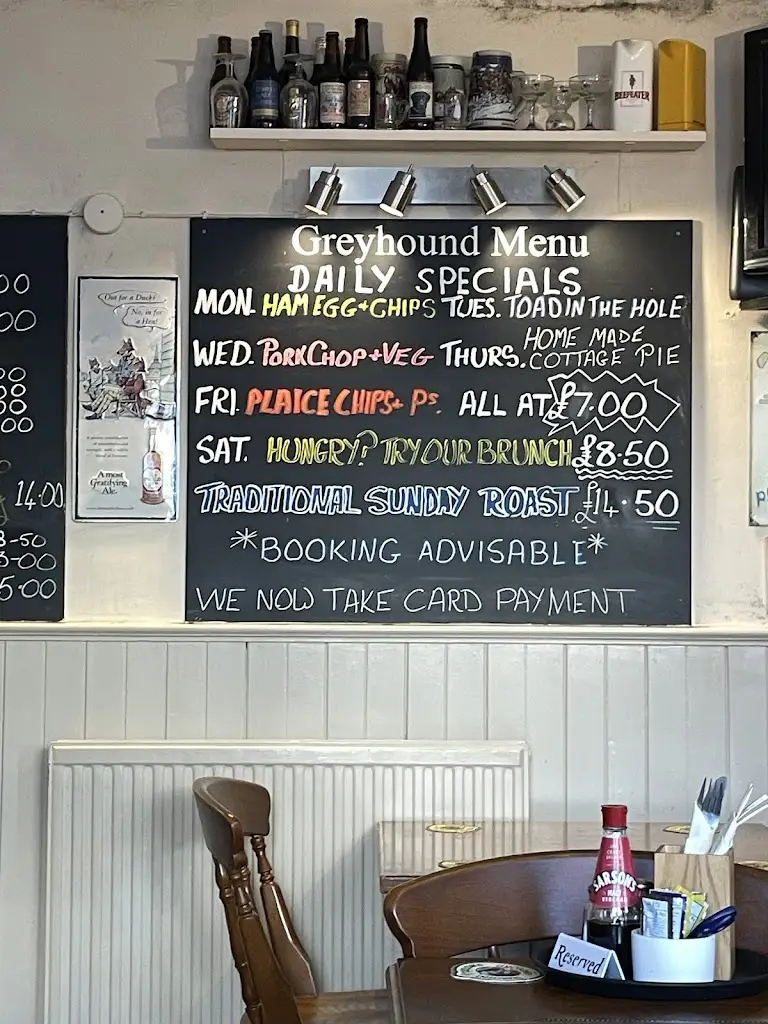 BEEFEATER
Greyhound Menu
DAILY SPECIALS
MON. HAM EGG+CHIPS TUES. TOAD IN THE HOLE
WED. PORK CHOP+VEG THURS. HOME MADE COTTAGE PIE
FRI. PLAICE CHIPS+ Ps. ALL AT £7.00
SAT. HUNGRY? TRY OUR BRUNCH £8.50
TRADITIONAL SUNDAY ROAST £14.50
*BOOKING ADVISABLE*
WE NOW TAKE CARD PAYMENT
Out for a Duck?
No, in for a Hen!
A most
Gratifying
Ale.
00
00
00
00
00
00
14.00
-50
-00
5.00
SARSON'S
MALT
VINEGAR
Reserved